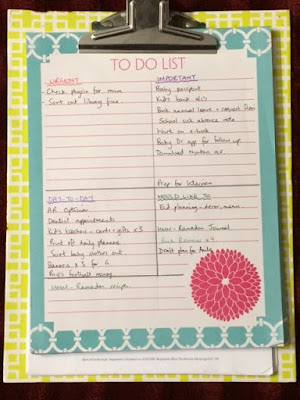 TO DO LIST
URGENT
- Check plugin for mum
- Sort out library fine
IMPORTANT
Baby passport
Kid's bank a/c's
Book annual leave + request from
School sick absence note
Work on e-book
Baby Dr app for follow up
Download Nurture
Prep for
DAY-TO-DAY
AR Optician
Dentist appointments
Kid's teachers - cards + gifts x 3
Print off daily planner
Sort baby clothes out
Banners x 5 for G
Boy's football money
Umm - Ramadan recipe
WOULD LIKE TO
Eid planning - decor, menu
Umm - Ramadan Journal
Book Review x 4
Draft plan for